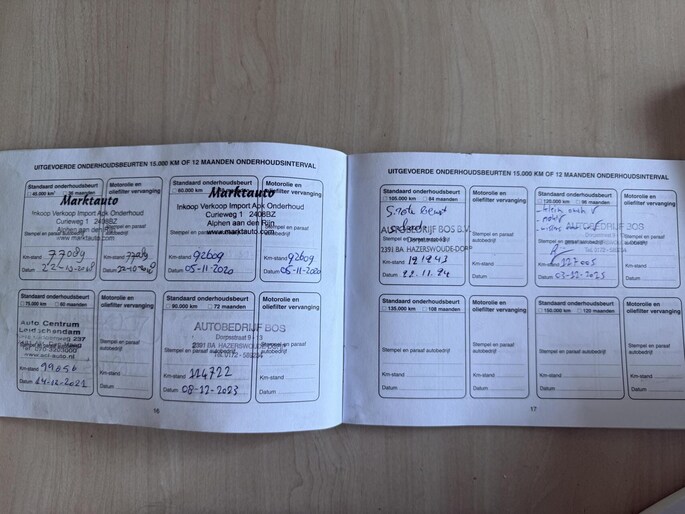 UITGEVOERDE ONDERHOUDSBEURTEN 15.000 KM OF 12 MAANDEN ONDERHOUDSINTERVAL
Standaard onderhoudsbeurt
45.000 km 36 maanden
Motorolie en
oliefilter vervanging
Marktauto
Inkoop Verkoop Import Apk Onderhoud
Curieweg 1 2408BZ
Alphen aan den Rijn
www.marktauto.com
Km-stand 77089
Datum 22-10-2018
Km-stand 77089
Datum 22-10-2018
Standaard onderhoudsbeurt
60.000 km
Motorolie en
oliefilter vervanging
Marktauto
Inkoop Verkoop Import Apk Onderhoud
Curieweg 1 2408BZ
Alphen aan den Rijn
www.marktauto.com
Km-stand 92609
Datum 05-11-2020
Km-stand 92609
Datum 05-11-2020
Standaard onderhoudsbeurt
75.000 km 60 maanden
Auto Centrum
Leidschendam
Stempel en paraaf
autobedrijf
Km-stand
Datum
Motorolie en
oliefilter vervanging
Stempel en paraaf
autobedrijf
Km-stand
Datum
Standaard onderhoudsbeurt
90.000 km 72 maanden
AUTOBEDRIJF BOS
Dorpsstraat 9 - 13
2391 BA HAZERSWOUDE-DORP
Km-stand 114722
Datum 08-12-2023
Motorolie en
oliefilter vervanging
Stempel en paraaf
autobedrijf
Km-stand
Datum
16
UITGEVOERDE ONDERHOUDSBEURTEN 15.000 KM OF 12 MAANDEN ONDERHOUDSINTERVAL
Standaard onderhoudsbeurt
105.000 km 84 maanden
AUTOBEDRIJF BOS B.V.
2391 BA HAZERSWOUDE-DORP
Km-stand
Datum
Motorolie en
oliefilter vervanging
Stempel en paraaf
autobedrijf
Km-stand
Datum
Standaard onderhoudsbeurt
120.000 km 96 maanden
AUTOBEDRIJF BOS
Km-stand 127005
Datum 03-12-2025
Motorolie en
oliefilter vervanging
Standaard onderhoudsbeurt
135.000 km 108 maanden
Stempel en paraaf
autobedrijf
Km-stand
Datum
Motorolie en
oliefilter vervanging
Stempel en paraaf
autobedrijf
Km-stand
Datum
Standaard onderhoudsbeurt
150.000 km 120 maanden
Stempel en paraaf
autobedrijf
Km-stand
Datum
Motorolie en
oliefilter vervanging
Stempel en paraaf
autobedrijf
Km-stand
Datum
17